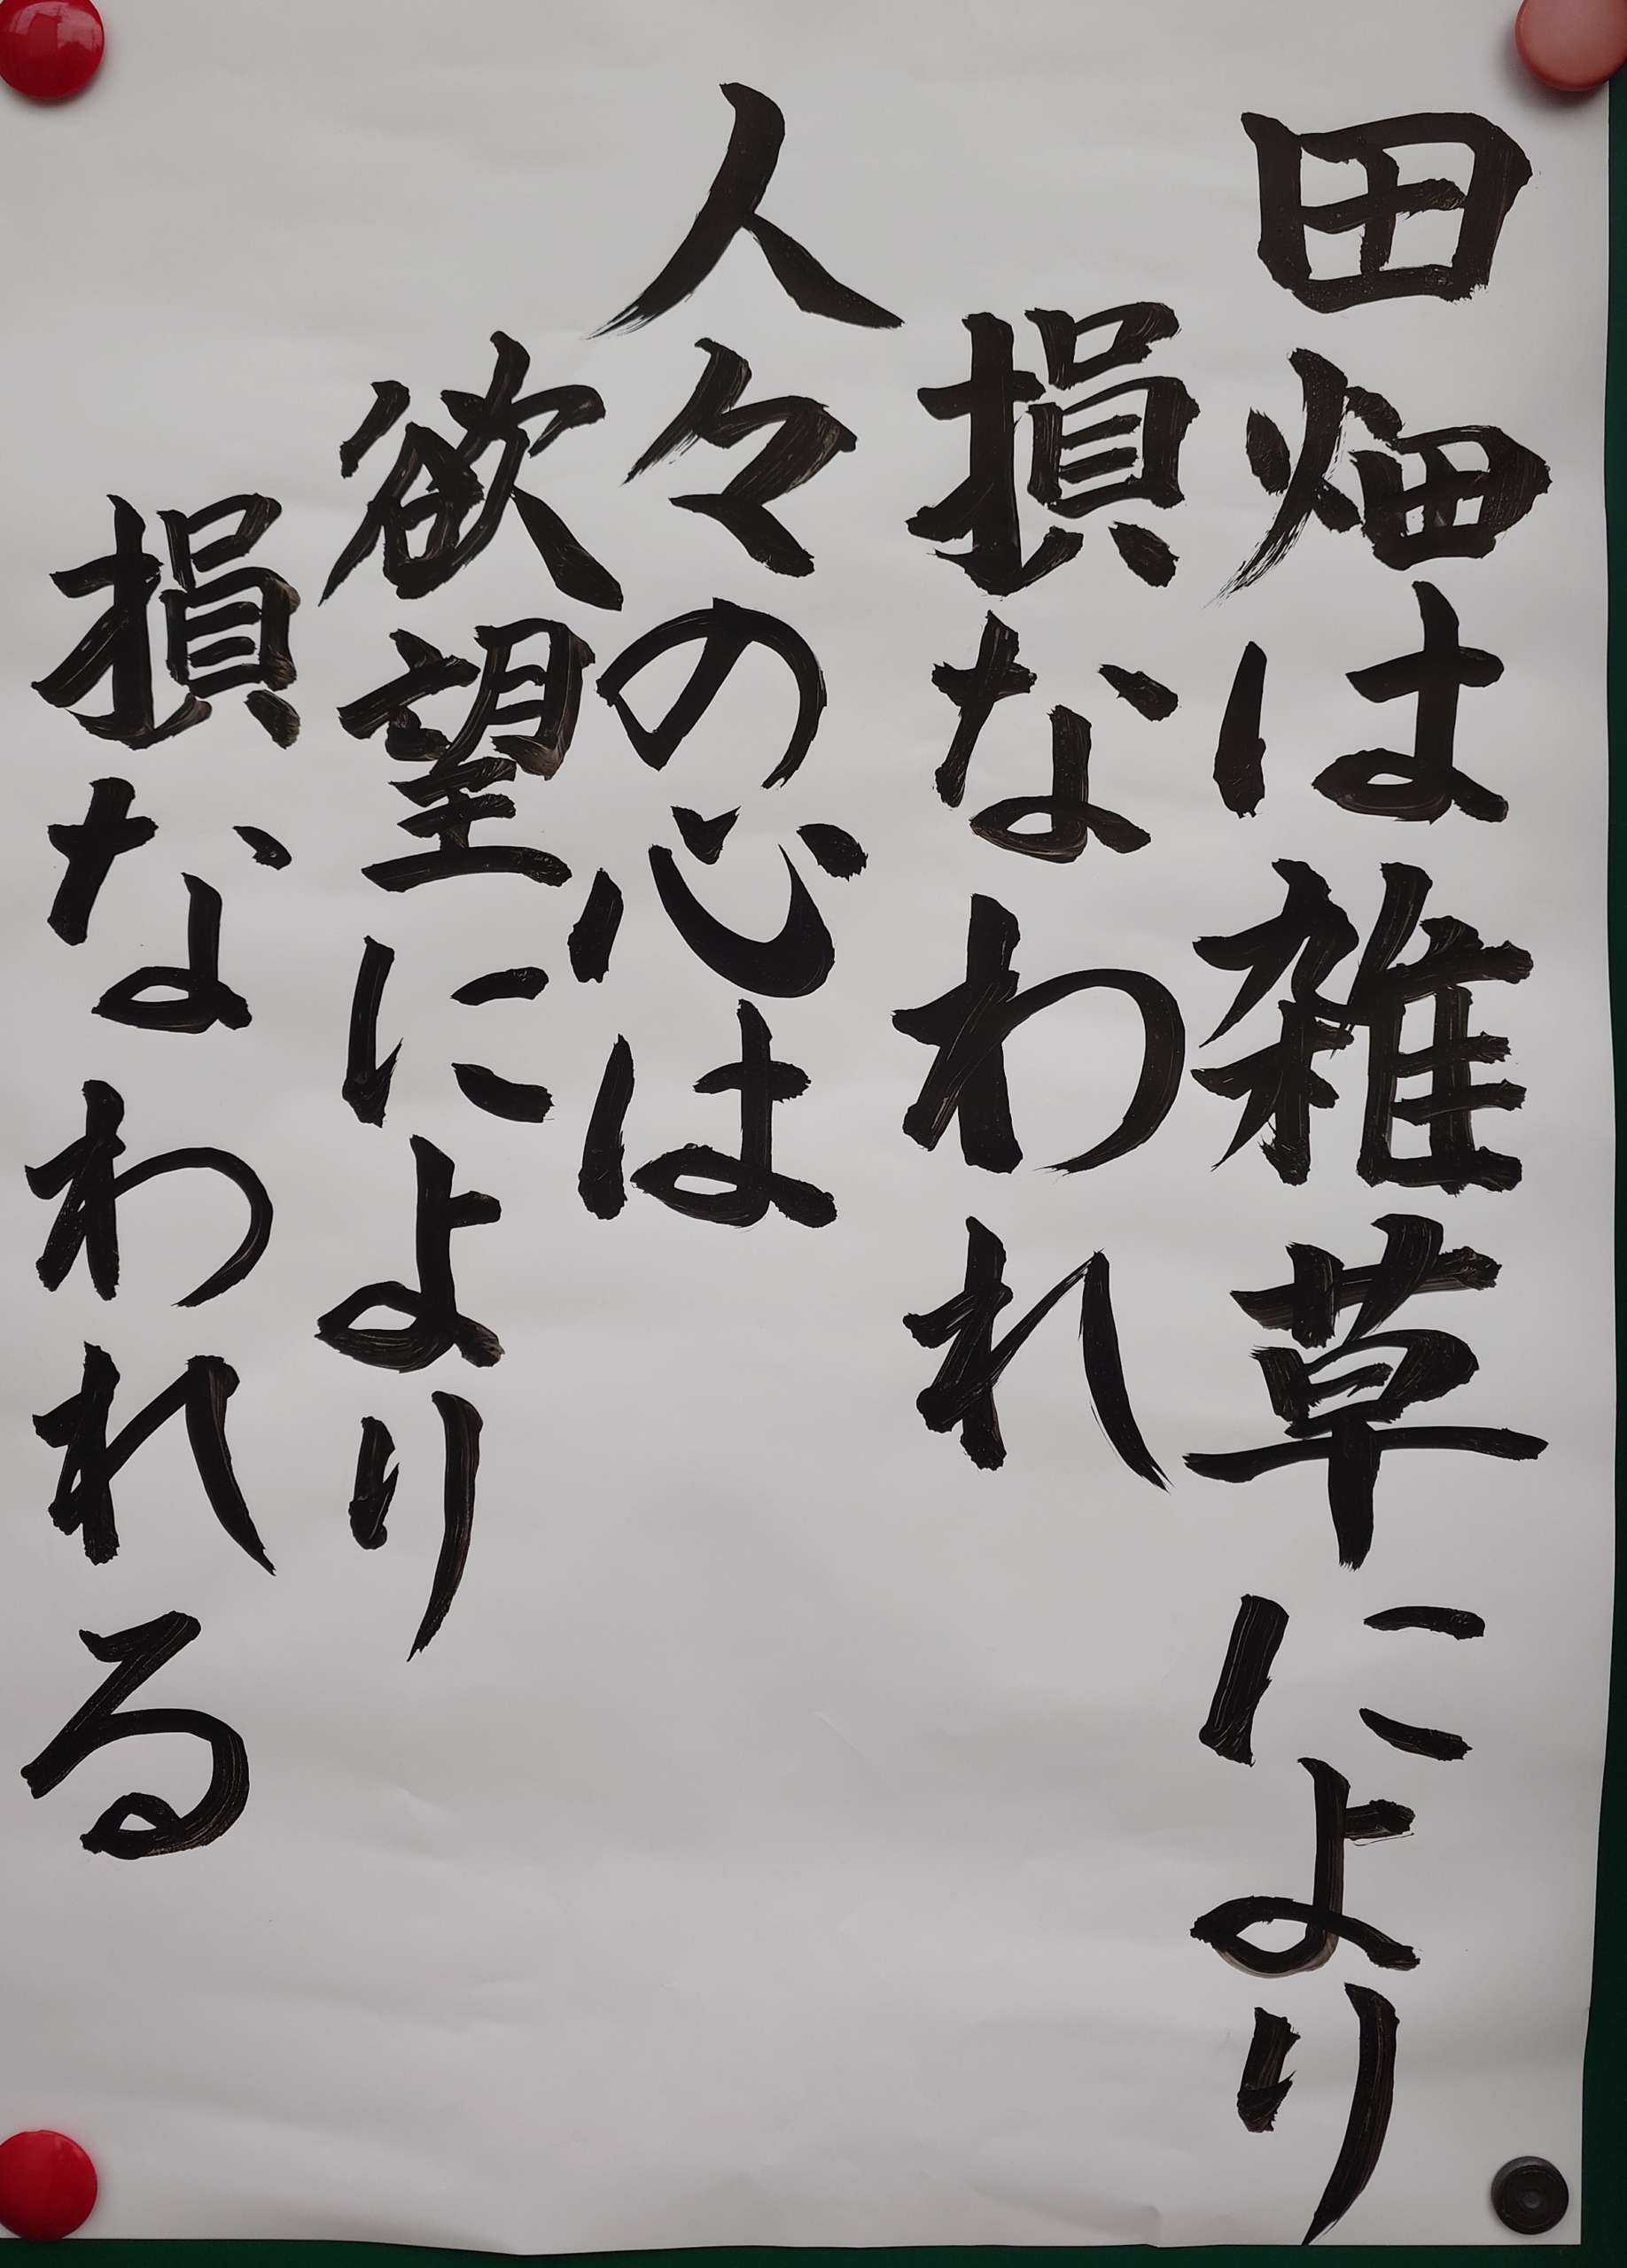 田畑は雑草により
損なわれ
人々の心は
欲望により
損なわれる